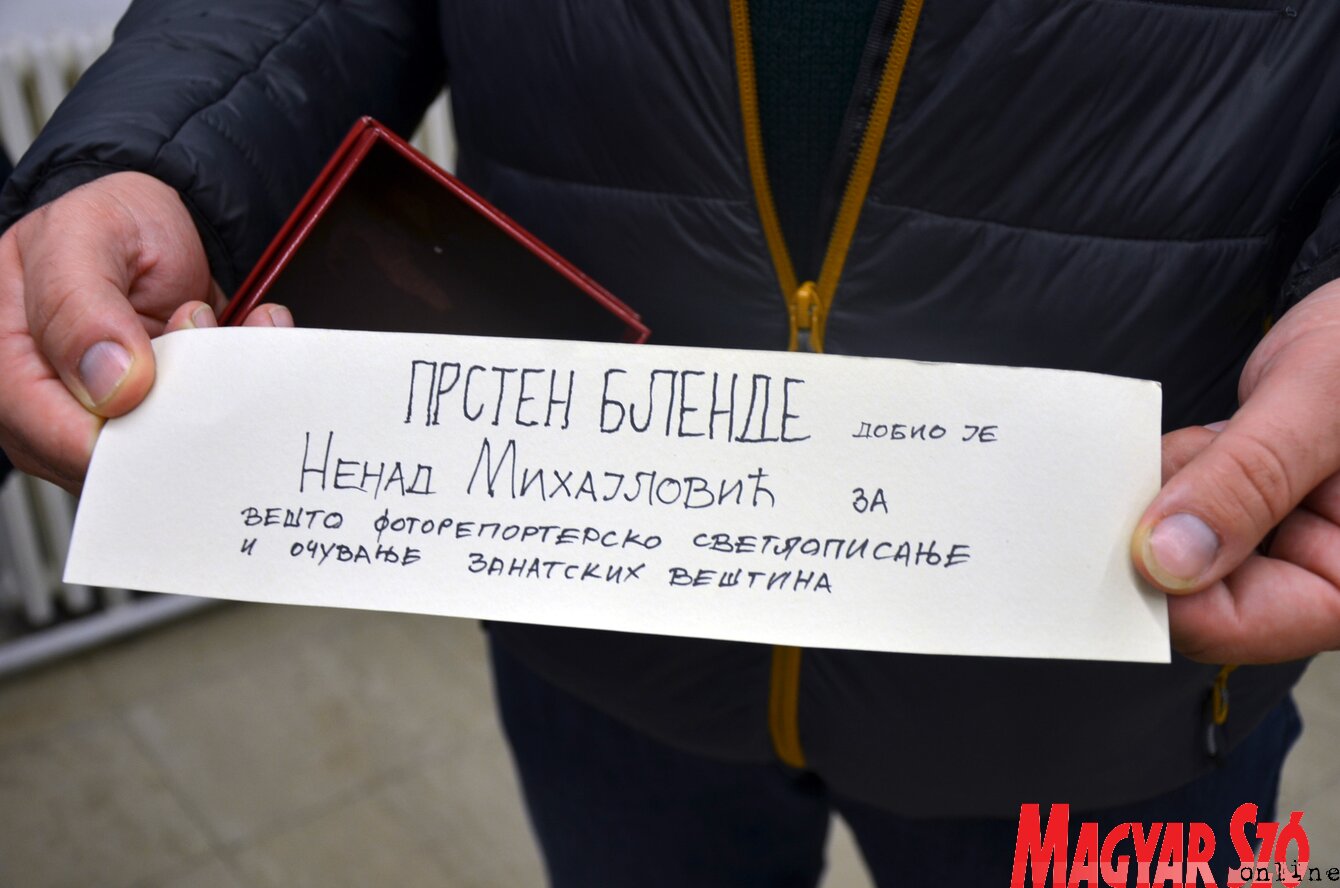 ПРСТЕН БЛЕНДЕ ДОБИО ЈЕ
НЕНАД МИХАЈЛОВИЋ ЗА
ВЕШТО ФОТОРЕПОРТЕРСКО СВЕТЛОПИСАЊЕ
И ОЧУВАЊЕ ЗАНАТСКИХ ВЕШТИНА
MAGYAR SZÓ
online